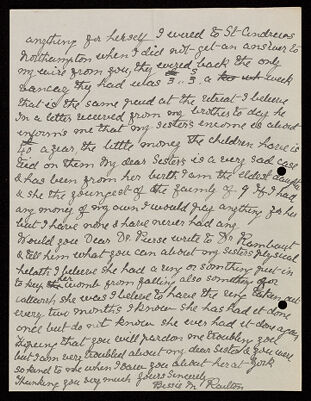 anything for herself I wired to St Andrews
Northampton when I did not get an answer to
my wire from you, they wired back the only
vancacy they had was 3. 3. a week
that is the same priced at the retreat I believe
In a letter received from my brother to day he
informs me that my sisters income is about
40 a year, the little money the children have is
tied on them My dear Sisters is a very sad case
& has been from her birth I am the eldest daughter
& she the youngest of the family of 9 If I had
any money of my own I would pay anything for her
but I have none & have never had any.
Would you Dear Dr Pierse write to Dr Rambaut
& tell him what you can about my sisters physical
helath I believe she had a ring or somthing put in
to keep her womb from falling also somthing for
she was I believe to have the ring taken out
every two months I know she has had it done
once but do not know she ever had it done again
Hoping that you will pardon me troubling you
but I am very troubled about my dear Sister & you were
so kind to me when I saw you about her at York
Thanking you very much Yours Sincerely
Bessie M